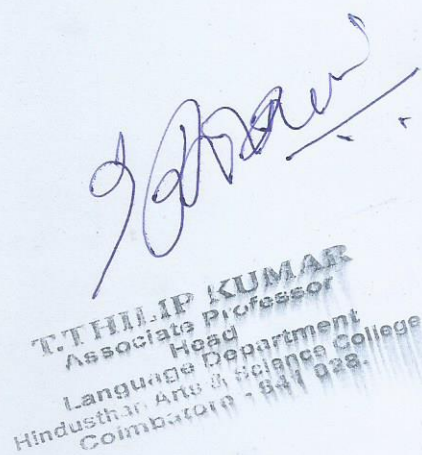 T.THILIP KUMAR
Associate Professor
Head
Language Department
Hindusthan Arts & Science College
Coimbatore - 641 028.